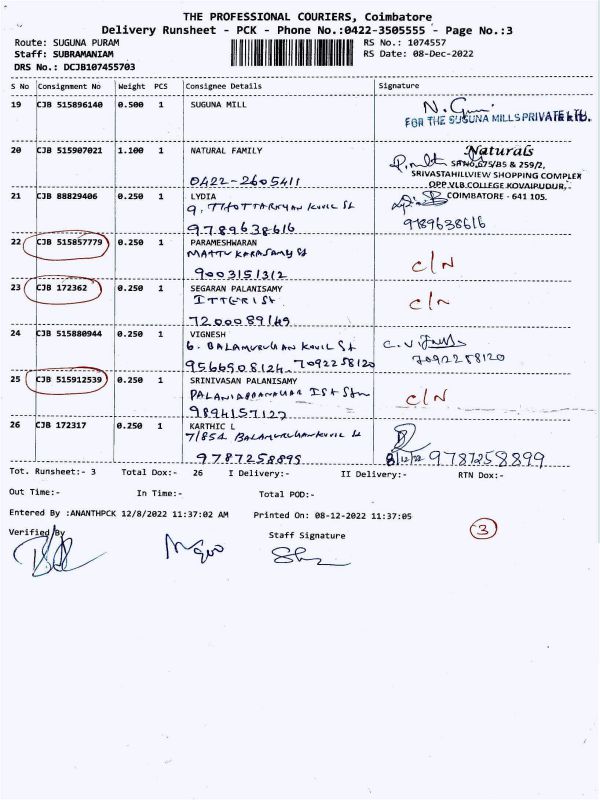 THE PROFESSIONAL COURIERS, Coimbatore
Delivery Runsheet - PCK - Phone No.:0422-3505555 - Page No.:3
Route: SUGUNA PURAM RS No.: 1074557
Staff: SUBRAMANIAM RS Date: 08-Dec-2022
DRS No.: DCJB107455703
S No Consignment No Weight PCS Consignee Details Signature
19 CJB 515896140 0.500 1 SUGUNA MILL
FOR THE SUGUNA MILLS PRIVATE LTD.
20 CJB 515907021 1.100 1 NATURAL FAMILY Naturals
SF.NO.675/85 & 259/2,
SRIVASTAHILLVIEW SHOPPING COMPLEX
0422-2605411 OPP. VLB COLLEGE KOVAIPUDUR,
21 CJB 88829406 0.250 1 LYDIA COIMBATORE - 641 105.
9789638616 9789638616
22 CJB 515857779 0.250 1 PARAMESHWARAN
C/N
9003151312
23 CJB 172362 0.250 1 SEGARAN PALANISAMY
ITTERI St C/N
7200089149
24 CJB 515880944 0.250 1 VIGNESH
6. BALAMURUGAN KOVIL St
9566508124. 7092258120 7092258120
25 CJB 515912539 0.250 1 SRINIVASAN PALANISAMY
C/N
9894157127
26 CJB 172317 0.250 1 KARTHIC L
7/854 BALAMURUGAN KOVIL St
9787258899 8/12/22 9787258899
Tot. Runsheet:- 3 Total Dox:- 26 I Delivery:- II Delivery:- RTN Dox:-
Out Time:- In Time:- Total POD:-
Entered By :ANANTHPCK 12/8/2022 11:37:02 AM Printed On: 08-12-2022 11:37:05
Verified By Staff Signature 3